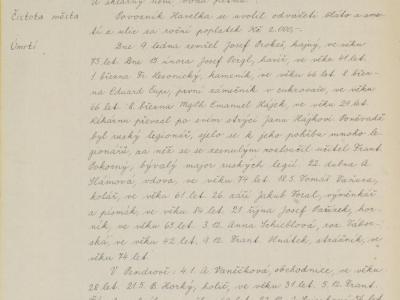 Čistota města
Povozník Havelka se uvolil odvážeti bláto a sme-
tí z ulic za roční poplatek Kč 2.000,-
Úmrtí
Dne 9. ledna zemřel Josef Prokeš, hajný, ve věku
73 let. Dne 13. února Josef Voigl, kovář, ve věku 41 let.
1. března Fr. Rezonický, kameník, ve věku 66 let. 8. břez-
na Eduard Cupr, první zámečník v cukrovaře, ve věku
66 let. 8. března MgPh Emanuel Hájek, ve věku 29 let.
Lékárnu převzal po něm strýci Janu Hájkovi. Poněvadž
byl ruský legionář, sjelo se k jeho pohřbu mnoho le-
gionářů, za něž se se zesnulým rozloučil učitel Frant.
Pokorný, bývalý major ruských legií. 22. dubna A.
Hámová, vdova, ve věku 74 let. 18.5. Tomáš Vaňura,
kolář, ve věku 61 let. 26. září Jakub Dozal, výměnkář
a písmák, ve věku 84 let. 21. října Josef Pařízek, hor-
ník, ve věku 63 let. 3.12. Anna Schieblová, roz. Tábor-
ská, ve věku 42 let. 9.12. Frant. Hnátek, strážník, ve
věku 74 let.
V Pendrově: 4.1. A. Vaníčková, obchodnice, ve věku
28 let. 21.5. B. Horký, holič, ve věku 31 let. 5.12. Frant.